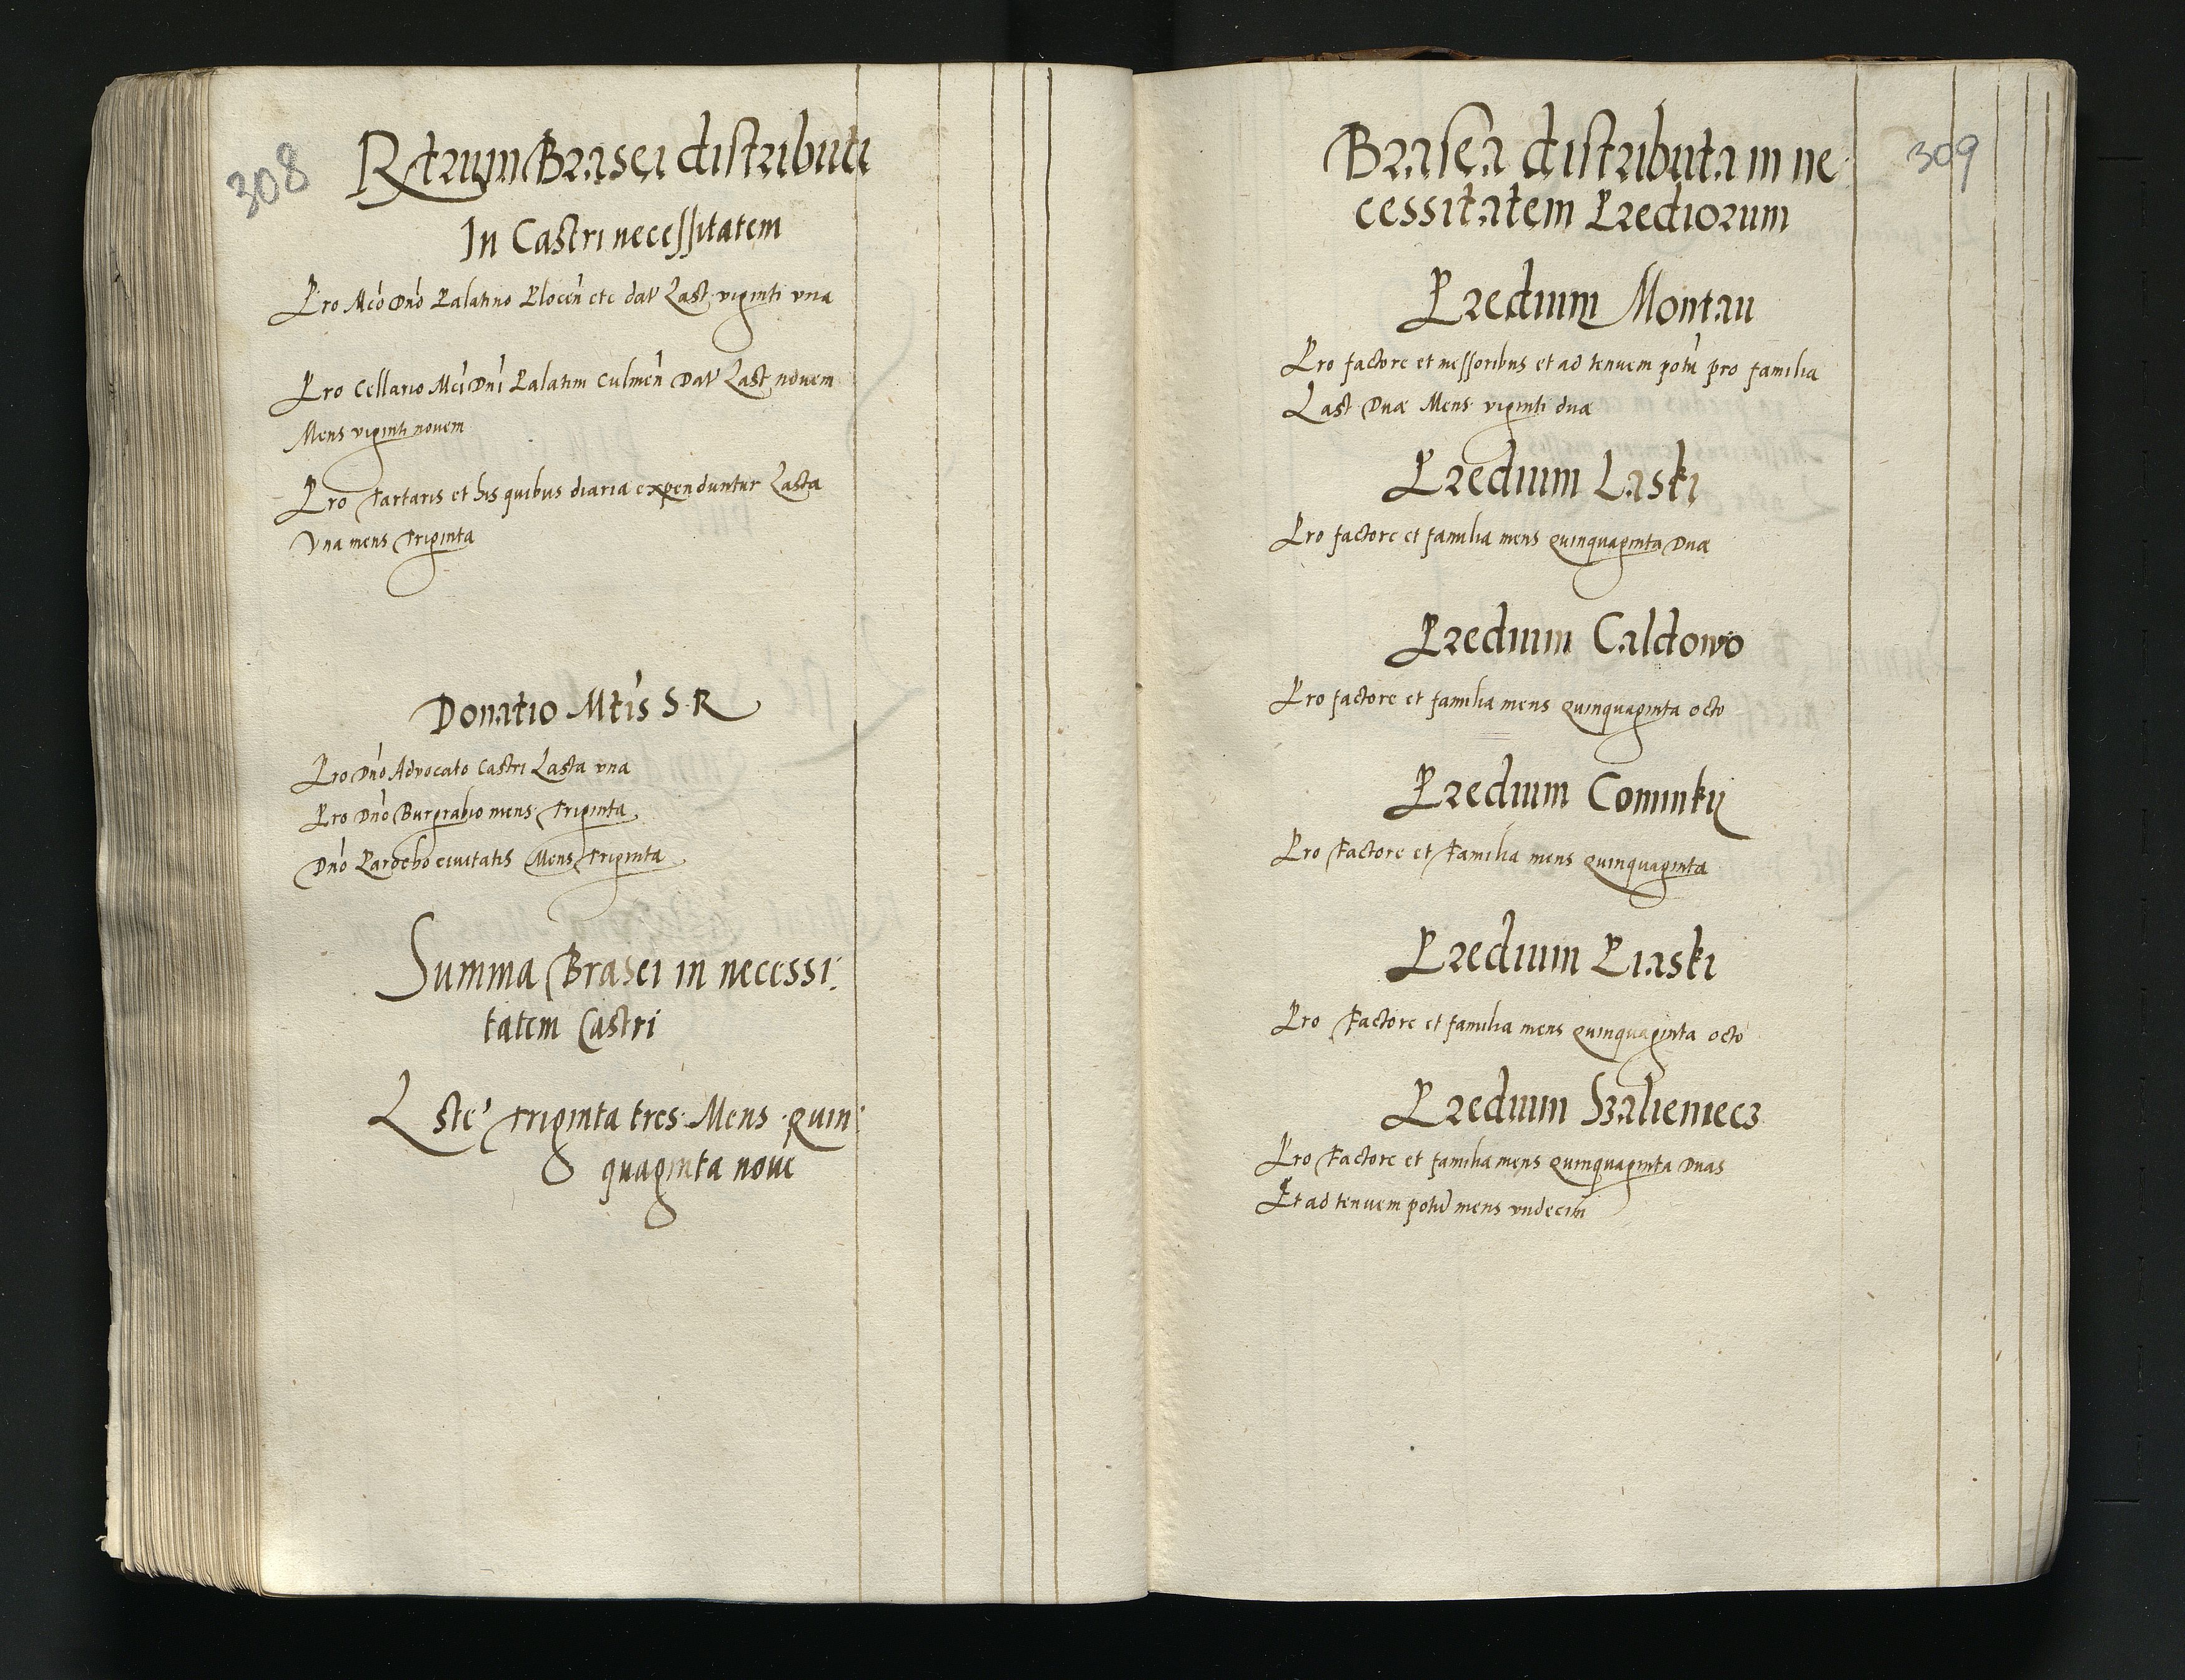 308
Rtrum Brasei distributi
In Castri necessitatem
Pro Mco Dno Palatino Plocen etc dat Last viginti vna
Pro Cellario Mci Dni Palatini Culmen Dat Last novem
Mens viginti novem
Pro Tartaris et his quibus diaria expenduntur Lasta
Vna mens Triginta
Donatio Mtis S. R
Pro Dno Advocato Castri Lasta vna
Pro Dno Burgrabio mens Triginta
Dno civitatis Mens Triginta
Summa Brasei in necessi:
tatem Castri
Lste Triginta tres Mens quin:
quaginta nove
309
Brasea distributa in ne
cessitatem Prediorum
Predium Montau
Pro factore et messoribus et ad tenuem potu pro familia
Last Duæ Mens viginti duæ
Predium Laski
Pro factore et familia mens quinquaginta Duæ
Predium Caldowo
Pro factore et familia mens quinquaginta octo
Predium Cominky
Pro Factore et Familia mens quinquaginta
Predium Piaski
Pro Factore et familia mens quinquaginta octo
Predium Szalieniecz
Pro Factore et familia mens quinquaginta Duas
Et ad tenuem potu mens vndecim